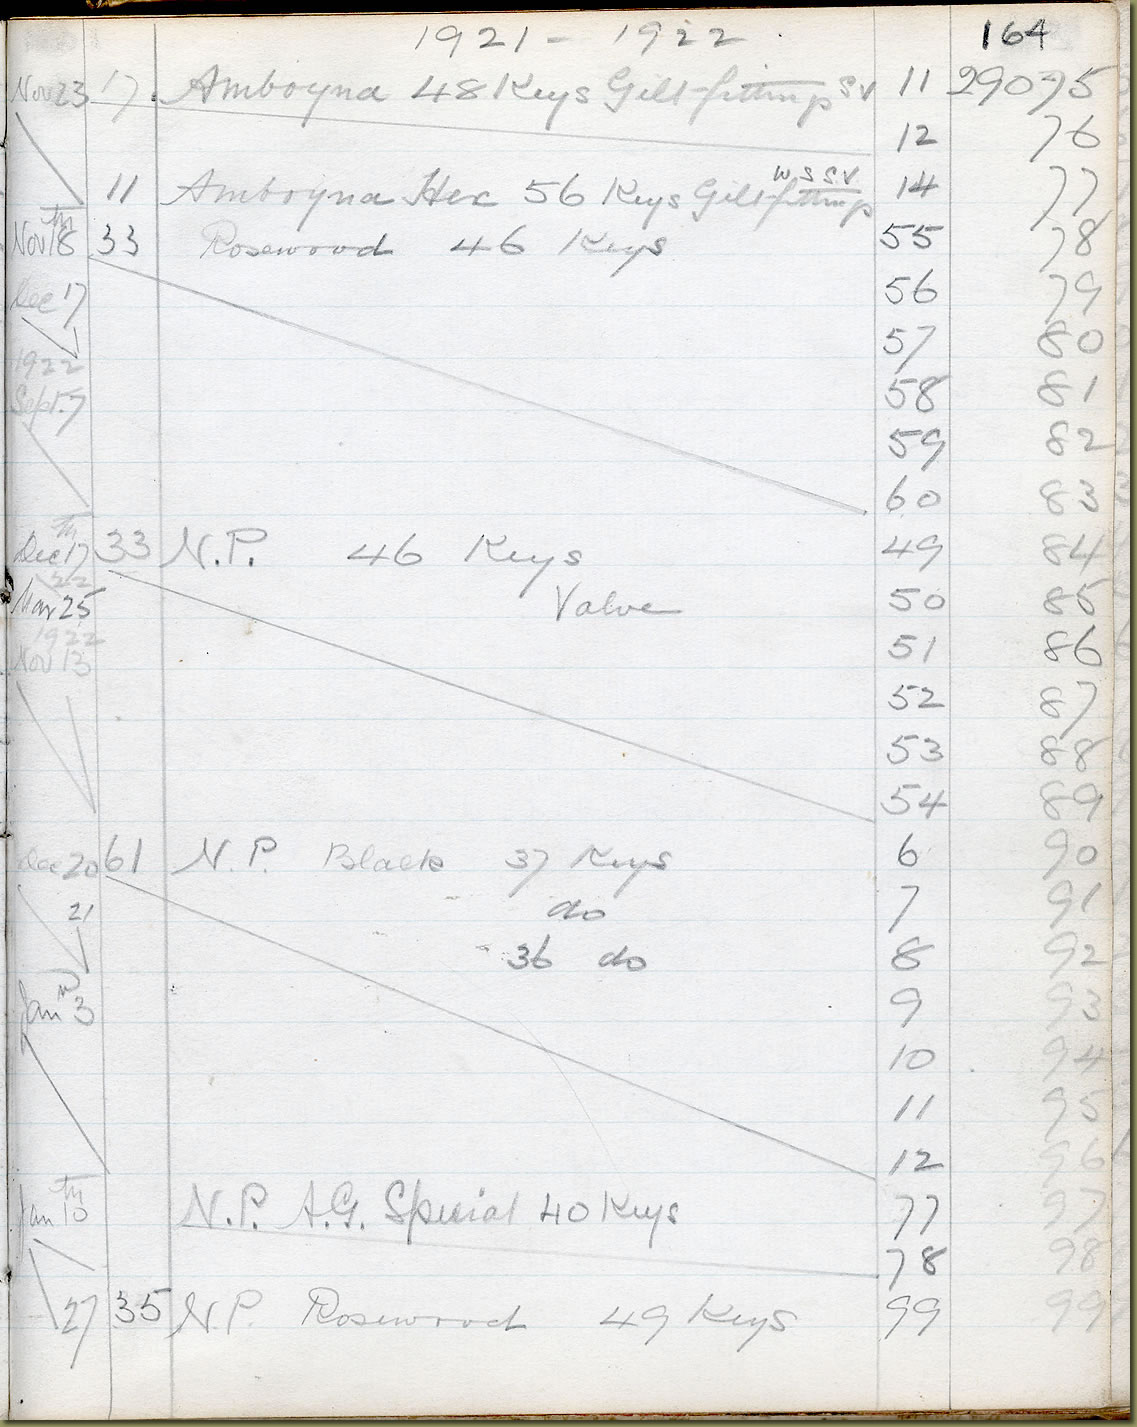 1921 - 1922 164
Nov 23 17 Amboyna 48 Keys Gilt fittings SV 11 29075
12 76
W.S S.V.
11 Amboyna Hex 56 Keys Gilt fittings 14 77
Nov 18th 33 Rosewood 46 Keys 55 78
Dec 17 56 79
57 80
1922
Sept. 7 58 81
59 82
60 83
Dec 17th 33 N.P. 46 Keys 49 84
22
Mar 25 Valve 50 85
1922
Nov 13 51 86
52 87
53 88
54 89
Dec 20 61 N.P. Black 37 Keys 6 90
21 do 7 91
36 do 8 92
Jan 3 9 93
10 94
11 95
12 96
Jan 10th N.P. A.G. Special 40 Keys 77 97
78 98
27 35 N.P. Rosewood 49 Keys 99 99